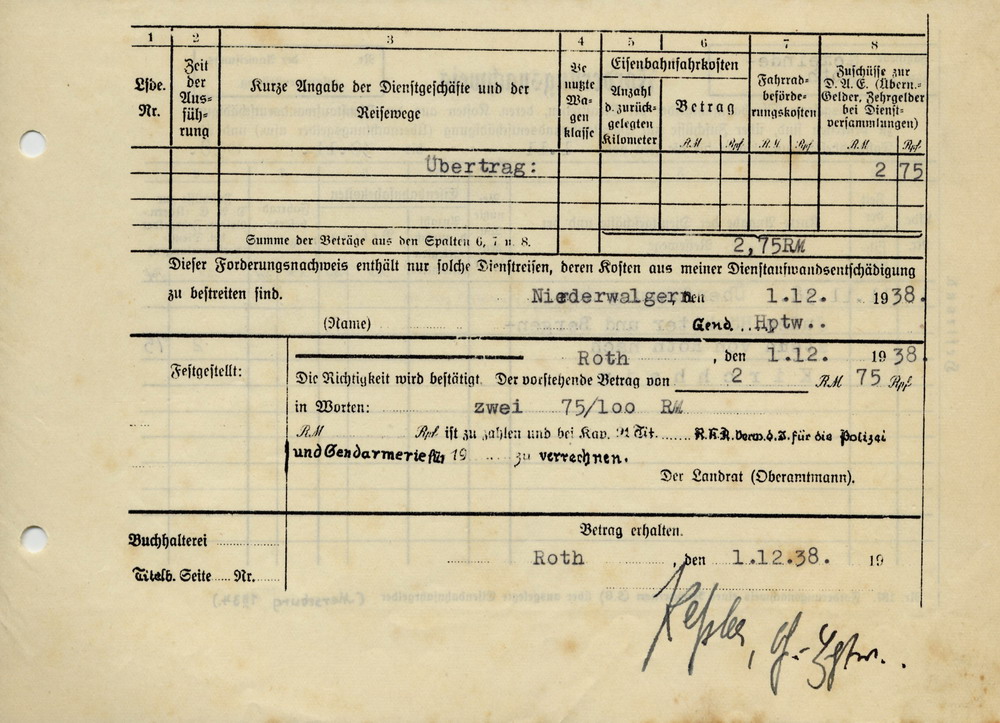 1 2 3 4 5 6 7 8
Lfde. Nr.
Zeit der Aus=füh=rung
Kurze Angabe der Dienstgeschäfte und der
Reisewege
Be nutzte Wa= gen klasse
Eisenbahnfahrkosten
Anzahl d. zurück= gelegten Kilometer
Betrag
RM Rpf
Fahrrad= beförde= rungskosten
RM Rpf
Zuschüsse zur D. A. E. (Übern.= Gelder, Zehrgelder bei Dienst= versammlungen)
RM Rpf
Übertrag: 2 75
Summe der Beträge aus den Spalten 6, 7 u. 8. 2,75RM
Dieser Forderungsnachweis enthält nur solche Dienstreisen, deren Kosten aus meiner Dienstaufwandsentschädigung
zu bestreiten sind. Niederwalgern, den 1.12. 1938.
(Name) Gend. Hptw..
Roth, den 1.12. 1938.
Festgestellt:
Die Richtigkeit wird bestätigt. Der vorstehende Betrag von 2 RM 75 Rpf
in Worten: zwei 75/100 RM
RM Rpf ist zu zahlen und bei Kap. 91 Tit. für die Polizei
und Gendarmerie für 19 zu verrechnen.
Der Landrat (Oberamtmann).
Betrag erhalten.
Buchhalterei
Roth, den 1.12.38. 19
Titelb. Seite Nr.